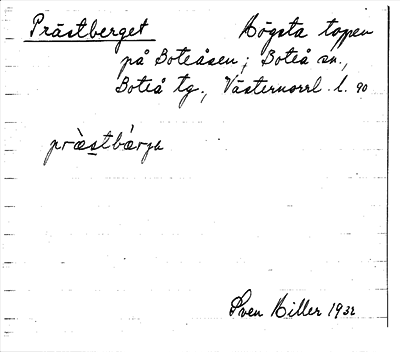 Prästberget Högsta toppen
på Boteåsen; Boteå sn.,
Boteå tg., Västernorrl. l. 90
prä̀stbárja
Sven Hiller 1932